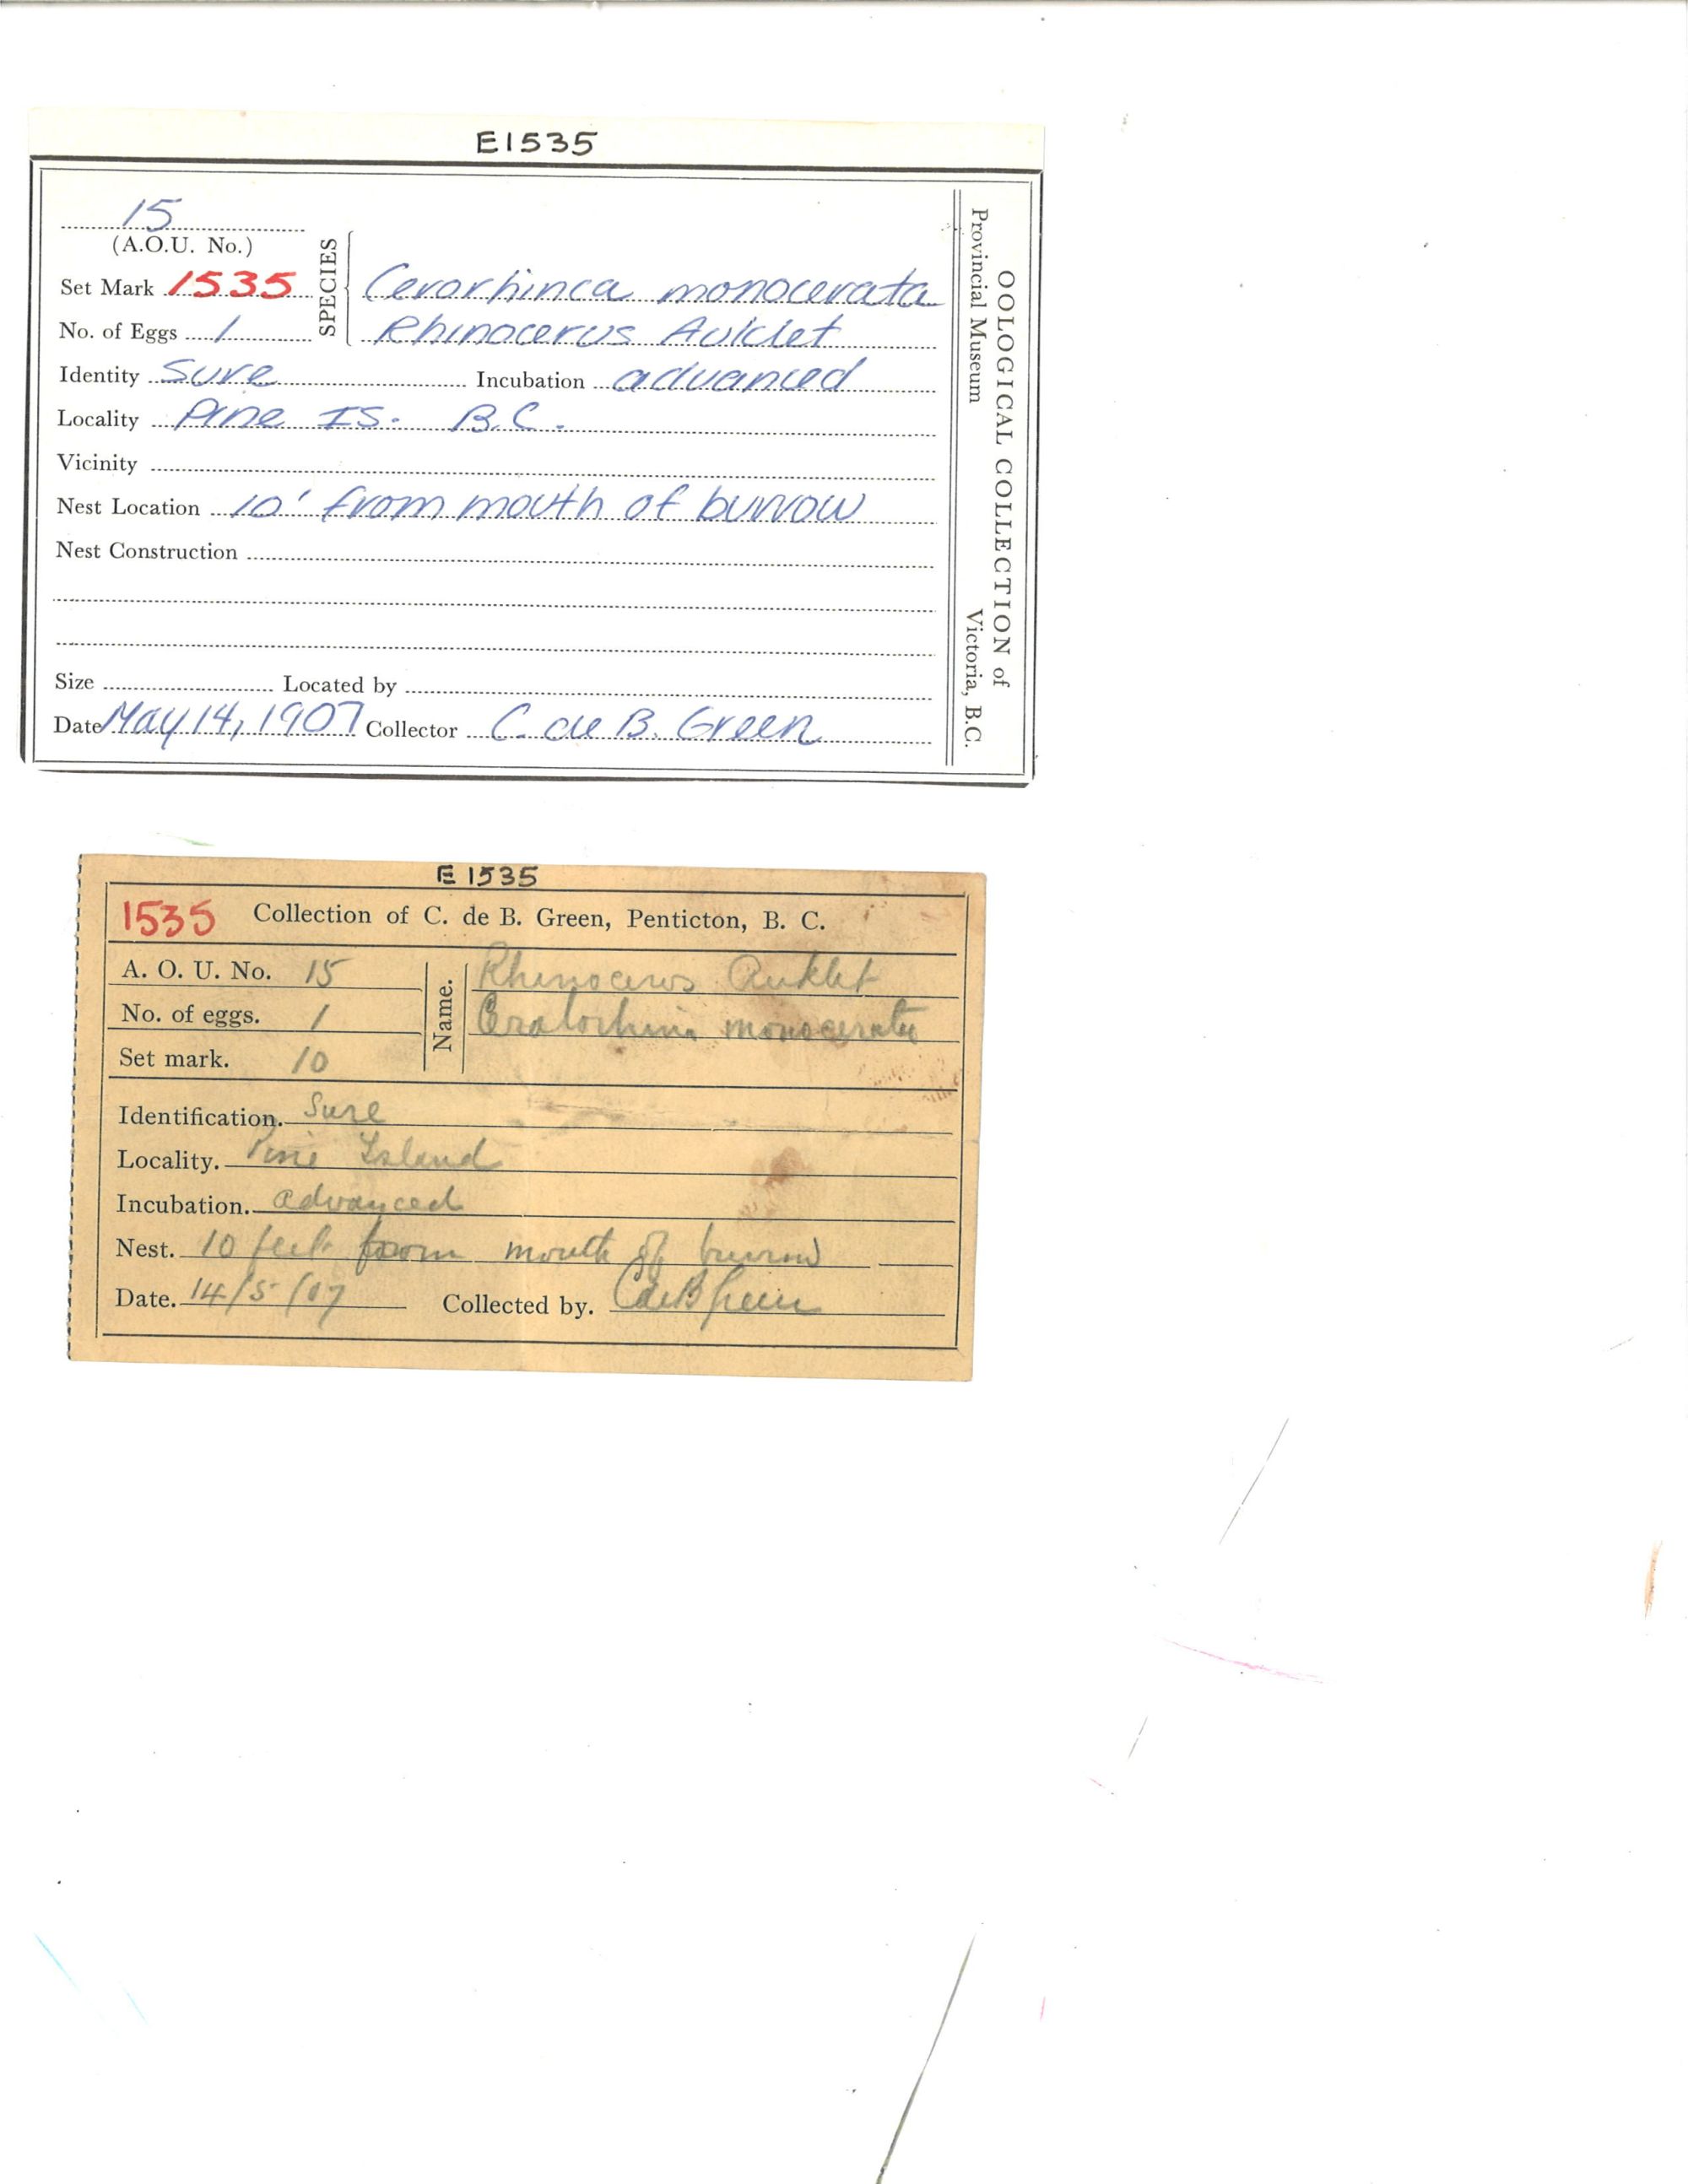 E1535
15
(A.O.U. No.)
Set Mark 1535
SPECIES
Cerorhinca monocerata
No. of Eggs 1
Rhinocerus Auklet
Identity Sure Incubation advanced
Locality Pine IS. B.C.
Vicinity
Nest Location 10' from mouth of burrow
Nest Construction
Size Located by
Date May 14, 1907 Collector C. de B. Green
OOLOGICAL COLLECTION of
Provincial Museum Victoria, B.C.
E 1535
1535 Collection of C. de B. Green, Penticton, B. C.
A. O. U. No. 15
Name.
Rhinocerus Auklet
No. of eggs. 1
monocerata
Set mark. 10
Identification. Sure
Locality. Pine Island
Incubation. advanced
Nest. 10 feet from mouth of burrow
Date. 14/5/07 Collected by. C de B Green